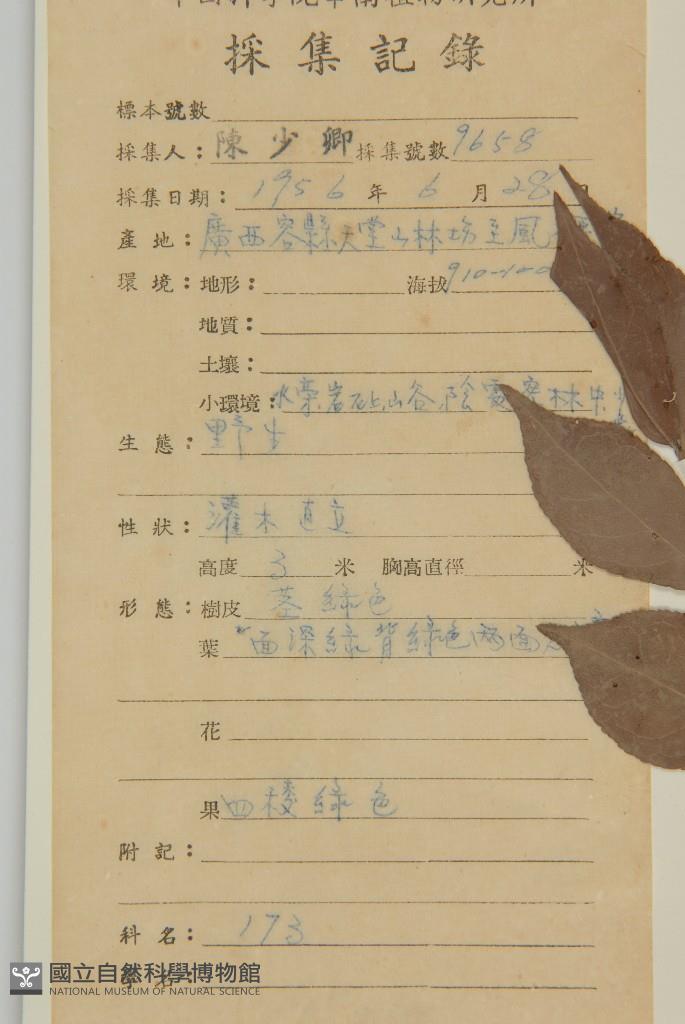 採集記錄
標本號數
採集人：陳少卿 採集號數 9658
採集日期：1956年 6月 28
產地：廣西容縣天堂山林場至風
環境：地形： 海拔 910-
地質：
土壤：
小環境：水 岩 山谷陰 密林中
生態：野生
性狀：灌木直立
高度 3 米 胸高直徑 米
形態：樹皮 莖綠色
葉 面深綠背綠色兩面
花
果 四棱綠色
附記：
科名： 173
學名：
國立自然科學博物館
NATIONAL MUSEUM OF NATURAL SCIENCE